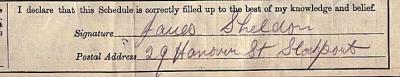 I declare that this Schedule is correctly filled up to the best of my knowledge and belief.
Signature James Sheldon
Postal Address 29 Hanover St Stockport